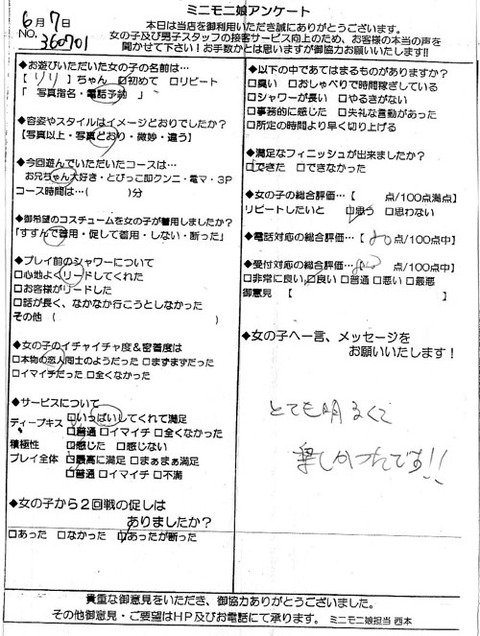 ミニモニ娘アンケート
6月7日
NO. 360701
本日は当店を御利用いただき誠にありがとうございます。
女の子及び男子スタッフの接客サービス向上のため、お客様の本当の声を
聞かせて下さい!お手数かとは思いますが御協力お願いいたします!!
◆お遊びいただいた女の子の名前は…
【 りり 】ちゃん □初めて □リピート
「 写真指名・電話予約 」
◆容姿やスタイルはイメージとおりでしたか?
【写真以上・写真どおり・微妙・違う】
◆今回遊んでいただいたコースは…
お兄ちゃん大好き・とびっこ即クンニ・電マ・3P
コース時間は…( )分
◆御希望のコスチュームを女の子が着用しましたか?
「すすんで着用・促して着用・しない・断った」
◆プレイ前のシャワーについて
□心地よくリードしてくれた
□お客様がリードした
□話が長く、なかなか行こうとしなかった
その他( )
◆女の子のイチャイチャ度&密着度は
□本物の恋人同士のようだった □まずまずだった
□イマイチだった □全くなかった
◆サービスについて
ディープキス □いっぱいしてくれて満足
□普通 □イマイチ □全くなかった
積極性 □感じた □感じない
プレイ全体 □最高に満足 □まぁまぁ満足
□普通 □イマイチ □不満
◆女の子から2回戦の促しは
ありましたか?
□あった □なかった □あったが断った
◆以下の中であてはまるものがありますか?
□臭い □おしゃべりで時間稼ぎしている
□シャワーが長い □やるきがない
□事務的に感じた □失礼な言動があった
□所定の時間より早く切り上げる
◆満足なフィニッシュが出来ましたか?
□できた □できなかった
◆女の子の総合評価…【 点/100点満点】
リピートしたいと □思う □思わない
◆電話対応の総合評価…【 80 点/100点中】
◆受付対応の総合評価…【 点/100点中】
□非常に良い □良い □普通 □悪い □最悪
御意見 【 】
◆女の子へ一言、メッセージを
お願いいたします!
とても明るくて
楽しかったです!!
貴重な御意見をいただき、御協力ありがとうございました。
その他御意見・ご要望はHP及びお電話にて承ります。 ミニモニ娘担当 西本